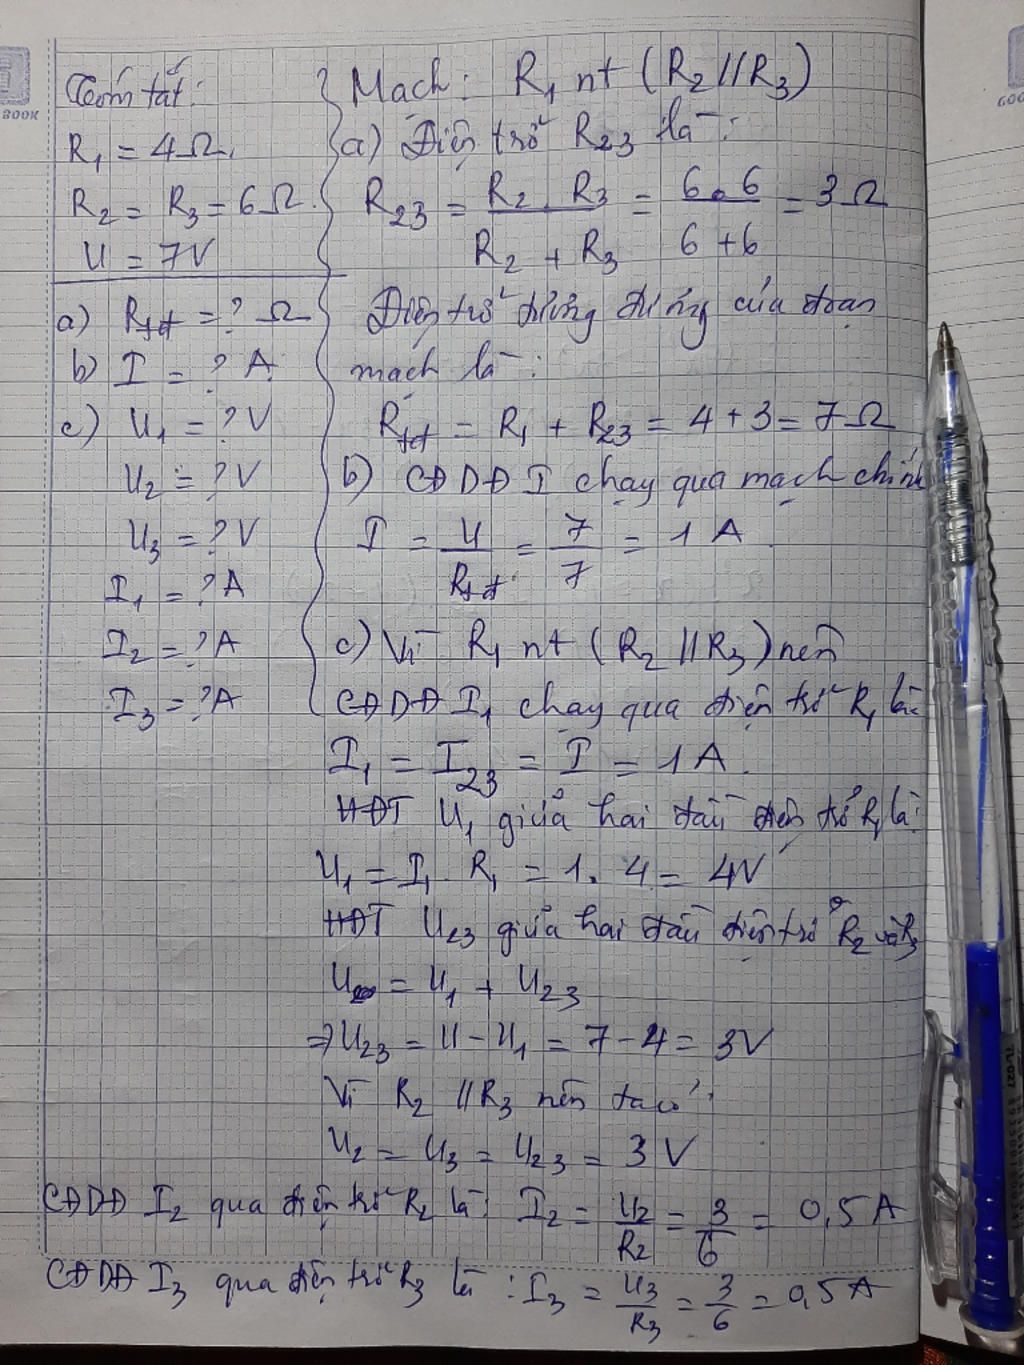 Tóm tắt:
R₁ = 4Ω
R₂ = R₃ = 6Ω
U = 7V
a) Rtđ = ? Ω
b) I = ? A
c) U₁ = ? V
U₂ = ? V
U₃ = ? V
I₁ = ? A
I₂ = ? A
I₃ = ? A
Mạch: R₁ nt (R₂ // R₃)
a) Điện trở R₂₃ là:
R₂₃ = R₂ . R₃ / R₂ + R₃ = 6 . 6 / 6 + 6 = 3Ω
Điện trở tương đương của đoạn
mạch là:
Rtđ = R₁ + R₂₃ = 4 + 3 = 7Ω
b) CĐDĐ I chạy qua mạch chính
I = U / Rtđ = 7 / 7 = 1 A
c) Vì R₁ nt (R₂ // R₃) nên
CĐDĐ I₁ chạy qua điện trở R₁ là:
I₁ = I₂₃ = I = 1 A.
HĐT U₁ giữa hai đầu điện trở R₁ là:
U₁ = I₁ . R₁ = 1 . 4 = 4V
HĐT U₂₃ giữa hai đầu điện trở R₂ và R₃
U = U₁ + U₂₃
⇒ U₂₃ = U - U₁ = 7 - 4 = 3V
Vì R₂ // R₃ nên ta có:
U₂ = U₃ = U₂₃ = 3 V
CĐDĐ I₂ qua điện trở R₂ là: I₂ = U₂ / R₂ = 3 / 6 = 0,5 A
CĐDĐ I₃ qua điện trở R₃ là: I₃ = U₃ / R₃ = 3 / 6 = 0,5 A
BOOK
TL-027